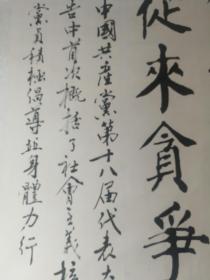 從來貪爭
中國共產黨第十八届代表大
告中首次概括了社會主義核
黨員積極倡導並身體力行